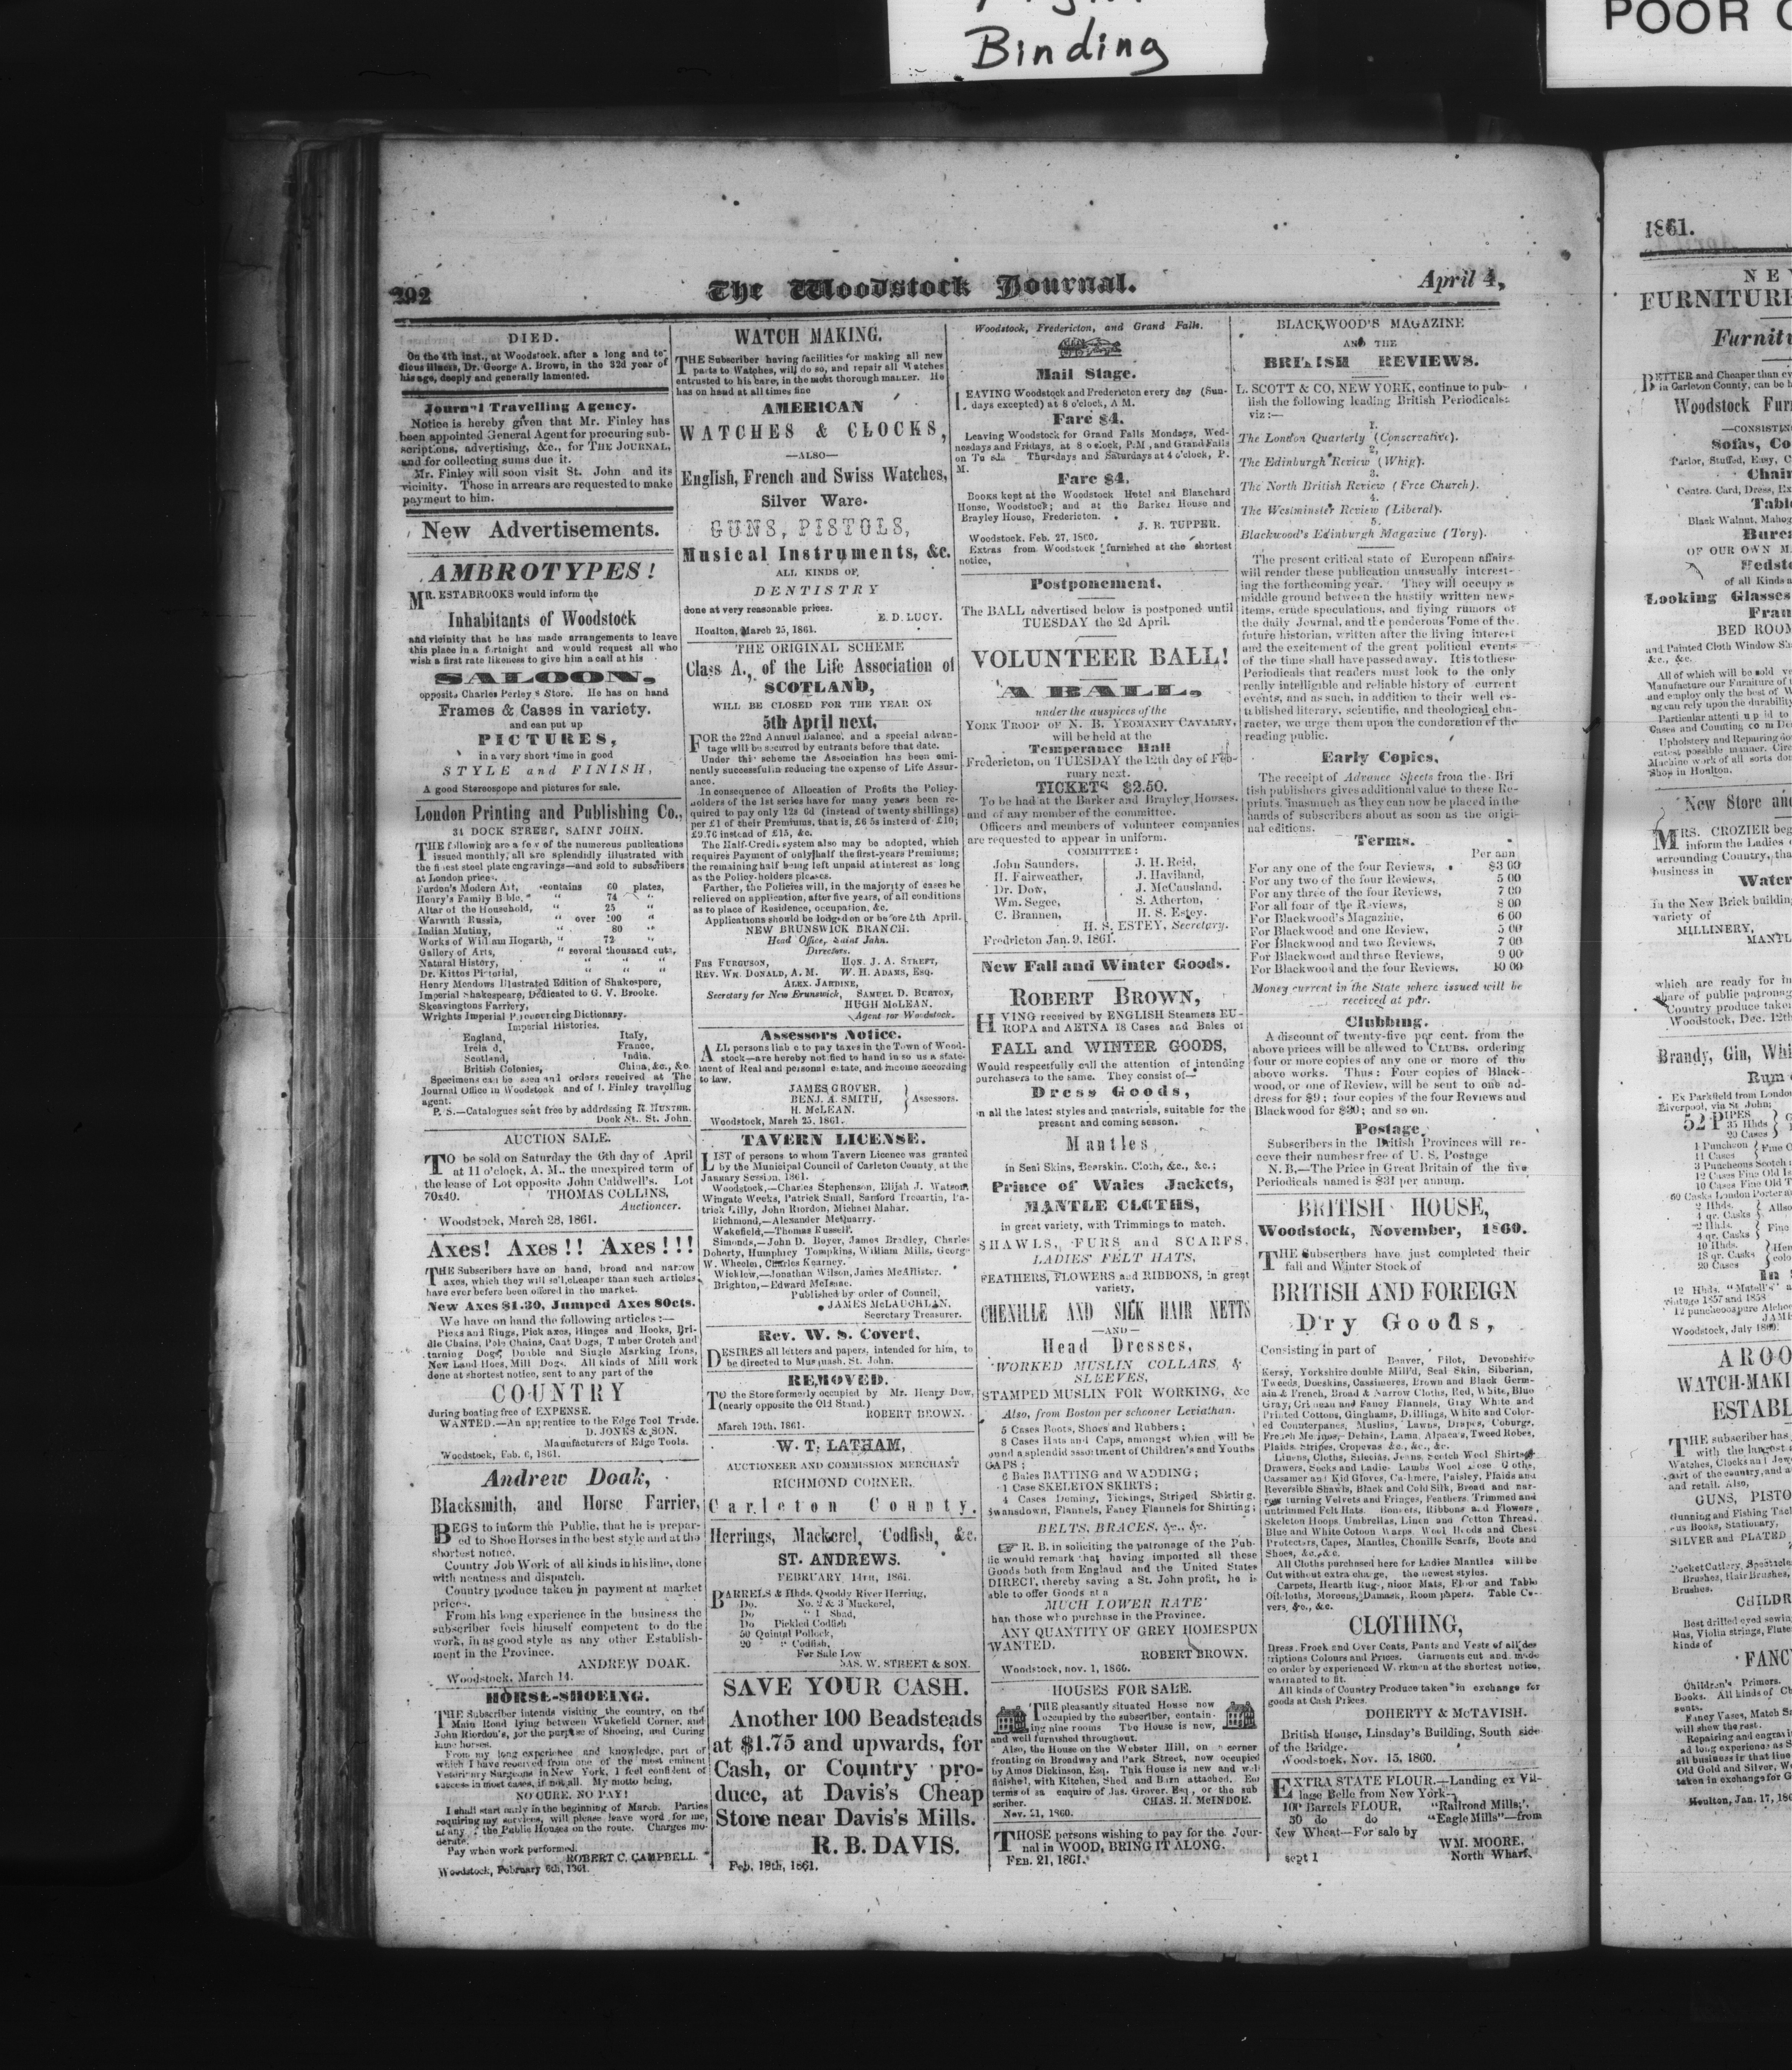 Binding
POOR
292
The Woodstock Journal.
April 4,
DIED.
On the 4th inst., at Woodstock, after a long and te-
dious illness, Dr. George A. Brown, in the 32d year of
his age, deeply and generally lamented.
Journal Travelling Agency.
Notice is hereby given that Mr. Finley has
been appointed General Agent for procuring sub-
scriptions, advertising, &c., for THE JOURNAL,
and for collecting sums due it.
Mr. Finley will soon visit St. John and its
vicinity. Those in arrears are requested to make
payment to him.
New Advertisements.
AMBROTYPES!
MR. ESTABROOKS would inform the
Inhabitants of Woodstock
and vicinity that he has made arrangements to leave
this place in a fortnight and would request all who
wish a first rate likeness to give him a call at his
SALOON,
opposite Charles Perley's Store. He has on hand
Frames & Cases in variety.
and can put up
PICTURES,
in a very short time in good
STYLE and FINISH,
A good Stereoscope and pictures for sale.
London Printing and Publishing Co.,
34 DOCK STREET, SAINT JOHN.
THE following are a few of the numerous publications
issued monthly, all are splendidly illustrated with
the finest steel plate engravings—and sold to subscribers
at London prices.
Furdon's Modern Art, contains 60 plates,
Henry's Family Bible, " 74 "
Altar of the Household, " 25 "
Warwith Russia, " over 200 "
Indian Mutiny, " 80 "
Works of William Hogarth, " 72 "
Gallery of Arts, " several thousand cuts,
Natural History, " " "
Dr. Kittos Pictorial, " " "
Henry Meadows Illustrated Edition of Shakspere,
Imperial Shakespeare, Dedicated to G. V. Brooke.
Skeavingtons Farriery,
Wrights Imperial Pronouncing Dictionary.
Imperial Histories.
England, Italy,
Ireland, France,
Scotland, India.
British Colonies, China, &c., &c.
Specimens can be seen and orders received at The
Journal Office in Woodstock and of J. Finley travelling
agent.
P. S.—Catalogues sent free by addressing R. HUNTER.
Dock St., St. John.
AUCTION SALE.
TO be sold on Saturday the 6th day of April
at 11 o'clock, A. M., the unexpired term of
the lease of Lot opposite John Caldwell's. Lot
70x40. THOMAS COLLINS,
Auctioneer.
Woodstock, March 28, 1861.
Axes! Axes!! Axes!!!
THE Subscribers have on hand, broad and narrow
axes, which they will sell cheaper than such articles
have ever before been offered in the market.
New Axes $1.30, Jumped Axes 80cts.
We have on hand the following articles:—
Picks and Rings, Pick axes, Hinges and Hooks, Bri-
dle Chains, Pole Chains, Cant Dogs, Timber Crotch and
turning Dogs, Double and Single Marking Irons,
New Land Hoes, Mill Dogs. All kinds of Mill work
done at shortest notice, sent to any part of the
COUNTRY
during boating free of EXPENSE.
WANTED.—An apprentice to the Edge Tool Trade.
D. JONES & SON.
Manufacturers of Edge Tools.
Woodstock, Feb. 6, 1861.
Andrew Doak,
Blacksmith, and Horse Farrier,
BEGS to inform the Public, that he is prepar-
ed to Shoe Horses in the best style and at the
shortest notice.
Country Job Work of all kinds in his line, done
with neatness and dispatch.
Country produce taken in payment at market
prices.
From his long experience in the business the
subscriber feels himself competent to do the
work, in as good style as any other Establish-
ment in the Province.
ANDREW DOAK.
Woodstock, March 14.
HORSE-SHOEING.
THE Subscriber intends visiting the country, on the
Main Road lying between Wakefield Corner, and
John Riordon's, for the purpose of Shoeing, and Curing
lame horses.
From my long experience and knowledge, part of
which I have received from one of the most eminent
Veterinary Surgeons in New York, I feel confident of
success in most cases, if not all. My motto being,
NO CURE. NO PAY!
I shall start early in the beginning of March. Parties
requiring my services, will please leave word for me,
at any of the Public Houses on the route. Charges mo-
derate.
Pay when work performed.
ROBERT C. CAMPBELL.
Woodstock, February 6th, 1861.
WATCH MAKING.
THE Subscriber having facilities for making all new
parts to Watches, will do so, and repair all Watches
entrusted to his care, in the most thorough manner. He
has on hand at all times fine
AMERICAN
WATCHES & CLOCKS,
—ALSO—
English, French and Swiss Watches,
Silver Ware.
GUNS, PISTOLS,
Musical Instruments, &c.
ALL KINDS OF
DENTISTRY
done at very reasonable prices.
E. D. LUCY.
Houlton, March 25, 1861.
THE ORIGINAL SCHEME
Class A., of the Life Association of
SCOTLAND,
WILL BE CLOSED FOR THE YEAR ON
5th April next,
FOR the 22nd Annual Balance. and a special advan-
tage will be secured by entrants before that date.
Under this scheme the Association has been emi-
nently successful in reducing the expense of Life Assur-
ance.
In consequence of Allocation of Profits the Policy-
holders of the 1st series have for many years been re-
quired to pay only 12s 6d (instead of twenty shillings)
per £1 of their Premiums, that is, £6 5s instead of £10;
£9.76 instead of £15, &c.
The Half-Credit system also may be adopted, which
requires Payment of only half the first-years Premiums;
the remaining half being left unpaid at interest as long
as the Policy-holders pleases.
Farther, the Policies will, in the majority of cases be
relieved on application, after five years, of all conditions
as to place of Residence, occupation, &c.
Applications should be lodged on or before 5th April.
NEW BRUNSWICK BRANCH.
Head Office, Saint John.
Directors.
FRS FURGUSON, HON. J. A. STREET,
REV. WM. DONALD, A. M. W. H. ADAMS, ESQ.
ALEX. JARDINE,
Secretary for New Brunswick, SAMUEL D. BURTON,
HUGH McLEAN.
Agent for Woodstock.
Assessors Notice.
ALL persons liable to pay taxes in the Town of Wood-
stock—are hereby notified to hand in to us a state-
ment of Real and personal estate, and income according
to law,
JAMES GROVER,
BENJ. A. SMITH, Assessors.
H. McLEAN.
Woodstock, March 25, 1861.
TAVERN LICENSE.
LIST of persons to whom Tavern Licence was granted
by the Municipal Council of Carleton County, at the
January Session. 1861.
Woodstock,—Charles Stephenson, Elijah J. Watson,
Wingate Weeks, Patrick Small, Sanford Trecartin, Pa-
trick Lilly, John Riordon, Michael Mahar.
Richmond,—Alexander McQuarry.
Wakefield,—Thomas Russell.
Simonds,—John D. Boyer, James Bradley, Charles
Doherty, Humphrey Tompkins, William Mills, George
W. Wheeler, Charles Kearney.
Wicklow,—Jonathan Wilson, James McAllister.
Brighton,—Edward McIsaac.
Published by order of Council,
JAMES McLAUCHLAN,
Secretary Treasurer.
Rev. W. S. Covert,
DESIRES all letters and papers, intended for him, to
be directed to Musquash, St. John.
REMOVED.
TO the Store formerly occupied by Mr. Henry Dow,
(nearly opposite the Old Stand.)
ROBERT BROWN.
March 19th. 1861.
W. T. LATHAM,
AUCTIONEER AND COMMISSION MERCHANT
RICHMOND CORNER.
Carleton County.
Herrings, Mackerel, Codfish, &c.
ST. ANDREWS.
FEBRUARY, 14TH, 1861.
BARRELS & Hhds. Quoddy River Herring,
Do. No. 2 & 3 Mackerel,
Do " 1 Shad,
Do Pickled Codfish
50 Quintal Pollock,
20 " Codfish,
For Sale Low
JAS. W. STREET & SON.
SAVE YOUR CASH.
Another 100 Beadsteads
at $1.75 and upwards, for
Cash, or Country pro-
duce, at Davis's Cheap
Store near Davis's Mills.
R. B. DAVIS.
Feb. 18th, 1861.
Woodstock, Fredericton, and Grand Falls.
Mail Stage.
LEAVING Woodstock and Fredericton every day (Sun-
days excepted) at 8 o'clock, A M.
Fare $4.
Leaving Woodstock for Grand Falls Mondays, Wed-
nesdays and Fridays, at 8 o'clock, P.M., and Grand Falls
on Thursdays and Saturdays at 4 o'clock, P.
M.
Fare $4.
BOOKS kept at the Woodstock Hotel and Blanchard
House, Woodstock; and at the Barker House and
Brayley House, Fredericton.
J. R. TUPPER.
Woodstock, Feb. 27, 1860.
Extras from Woodstock furnished at the shortest
notice,
Postponement.
The BALL advertised below is postponed until
TUESDAY the 2d April.
VOLUNTEER BALL!
A BALL,
under the auspices of the
YORK TROOP OF N. B. YEOMANRY CAVALRY,
will be held at the
Temperance Hall
Fredericton, on TUESDAY the 12th day of Feb-
ruary next.
TICKETS $2.50.
To be had at the Barker and Brayley Houses,
and of any member of the committee.
Officers and members of volunteer companies
are requested to appear in uniform.
COMMITTEE:
John Saunders, J. H. Reid,
H. Fairweather, J. Haviland,
Dr. Dow, J. McCausland,
Wm. Segee, S. Atherton,
C. Brannen, H. S. Estey.
H. S. ESTEY, Secretary.
Fredricton Jan. 9, 1861.
New Fall and Winter Goods.
ROBERT BROWN,
HVING received by ENGLISH Steamers EU-
ROPA and AETNA 18 Cases and Bales of
FALL and WINTER GOODS,
Would respectfully call the attention of intending
purchasers to the same. They consist of—
Dress Goods,
in all the latest styles and materials, suitable for the
present and coming season.
Mantles,
in Seal Skins, Bearskin. Cloth, &c., &c.;
Prince of Wales Jackets,
MANTLE CLOTHS,
in great variety, with Trimmings to match.
SHAWLS, FURS and SCARFS,
LADIES' FELT HATS,
FEATHERS, FLOWERS and RIBBONS, in great
variety,
CHENILLE AND SILK HAIR NETTS
—AND—
Head Dresses,
WORKED MUSLIN COLLARS, &
SLEEVES,
STAMPED MUSLIN FOR WORKING, &c
Also, from Boston per schooner Leviathan.
5 Cases Boots, Shoes and Rubbers;
8 Cases Hats and Caps, amongst which will be
ound a splendid assortment of Children's and Youths
CAPS;
6 Bales BATTING and WADDING;
1 Case SKELETON SKIRTS;
4 Cases Deming, Tickings, Striped Shirting,
Swansdown, Flannels, Fancy Flannels for Shirting;
BELTS, BRACES, &c., &c.
☞ R. B. in soliciting the patronage of the Pub-
lic would remark that having imported all these
Goods both from England and the United States
DIRECT, thereby saving a St. John profit, he is
able to offer Goods at a
MUCH LOWER RATE
han those who purchase in the Province.
ANY QUANTITY OF GREY HOMESPUN
WANTED.
ROBERT BROWN.
Woodstock, nov. 1, 1860.
HOUSES FOR SALE.
THE pleasantly situated House now
occupied by the subscriber, contain-
ing nine rooms The House is new,
and well furnished throughout.
Also, the House on the Webster Hill, on corner
fronting on Broadway and Park Street, now occupied
by Amos Dickinson, Esq. This House is new and well
finished, with Kitchen, Shed and Barn attached. For
terms of sa enquire of Jas. Grover. Esq., or the sub
scriber. CHAS. H. McINDOE.
Nov. 21, 1860.
THOSE persons wishing to pay for the Jour-
nal in WOOD, BRING IT ALONG.
FEB. 21, 1861.
BLACKWOOD'S MAGAZINE
AND THE
BRITISH REVIEWS.
L. SCOTT & CO, NEW YORK, continue to pub-
lish the following leading British Periodicals.
viz:—
1.
The London Quarterly (Conservative).
2.
The Edinburgh Review (Whig).
3.
The North British Review (Free Church).
4.
The Westminster Review (Liberal).
5.
Blackwood's Edinburgh Magazine (Tory).
The present critical state of European affairs
will render these publication unusually interest-
ing the forthcoming year. They will occupy a
middle ground between the hastily written news
items, crude speculations, and flying rumors of
the daily Journal, and the ponderous Tome of the
future historian, written after the living interest
and the excitement of the great political events
of the time shall have passed away. It is to these
Periodicals that readers must look to the only
really intelligible and reliable history of current
events, and as such, in addition to their well es-
tablished literary, scientific, and theological cha-
racter, we urge them upon the condoration of the
reading public.
Early Copies.
The receipt of Advance Sheets from the Bri
tish publishers gives additional value to these Re-
prints. Inasmuch as they can now be placed in the
hands of subscribers about as soon as the origi-
nal editions.
Terms.
Per ann
For any one of the four Reviews, $3 00
For any two of the four Reviews, 5 00
For any three of the four Reviews, 7 00
For all four of the Reviews, 8 00
For Blackwood's Magazine, 6 00
For Blackwood and one Review, 5 00
For Blackwood and two Reviews, 7 00
For Blackwood and three Reviews, 9 00
For Blackwood and the four Reviews, 10 00
Money current in the State where issued will be
received at par.
Clubbing.
A discount of twenty-five per cent. from the
above prices will be allowed to CLUBS. ordering
four or more copies of any one or more of the
above works. Thus: Four copies of Black-
wood, or one of Review, will be sent to one ad-
dress for $9; four copies of the four Reviews and
Blackwood for $30; and so on.
Postage.
Subscribers in the British Provinces will re-
ceve their numbesr free of U. S. Postage
N. B.—The Price in Great Britain of the five
Periodicals named is $31 per annum.
BRITISH HOUSE,
Woodstock, November, 1860.
THE Subscribers have just completed their
fall and Winter Stock of
BRITISH AND FOREIGN
Dry Goods,
Consisting in part of
Beaver, Pilot, Devonshire
Kersy, Yorkshire double Mill'd, Seal Skin, Siberian,
Tweeds, Doeskins, Cassimeres, Brown and Black Germ-
ain & French, Broad & Narrow Cloths, Red, White, Blue
Gray, Crimean and Fancy Flannels, Gray White and
Printed Cottons, Ginghams, Drillings, White and Color-
ed Counterpanes, Muslins, Lawns, Drapes, Coburgs,
French Merinos, Delains, Lama, Alpaca's, Tweed Robes,
Plaids. Stripes, Cropovas &c., &c., &c.
Linens, Cloths, Silecias, Jeans, Scotch Wool Shirts,
Drawers, Socks and Ladies Lambs Wool Hose Cloths,
Cassamer and Kid Gloves, Cashmere, Paisley, Plaids and
Reversible Shawls, Black and Cold Silk, Broad and nar-
row turning Velvets and Fringes, Feathers, Trimmed and
untrimmed Felt Hats. Bonnets, Ribbons and Flowers,
Skeleton Hoops, Umbrellas, Linen and Cotton Thread,
Blue and White Cotoon Warps, Wool Hoods and Chest
Protectors, Capes, Mantles, Chenille Scarfs, Boots and
Shoes, &c., &c.
All Cloths purchased here for Ladies Mantles will be
Cut without extra charge, the newest styles.
Carpets, Hearth Rugs, nioor Mats, Floor and Table
Oilcloths, Moreens, Damask, Room papers. Table Co-
vers, &c., &c.
CLOTHING,
Dress, Frock and Over Coats, Pants and Vests of all des
criptions Colours and Prices. Garments cut and made
co order by experienced Workmen at the shortest notice,
warranted to fit.
All kinds of Country Produce taken in exchange for
goods at Cash Prices.
DOHERTY & McTAVISH.
British House, Linsday's Building, South side
of the Bridge.
Woodstock, Nov. 15, 1860.
EXTRA STATE FLOUR.—Landing ex Vil-
lage Belle from New York—
100 Barrels FLOUR, "Railroad Mills,"
50 do do "Eagle Mills"—from
New Wheat—For sale by
WM. MOORE,
sept 1 North Wharf.
1861.
FURNITURE
BETTER and Cheaper than
in Carleton County, can be
—CONSISTING
Sofas,
Parlor, Stuffed, Easy,
Centre, Card, Dress,
Black Walnut,
OF OUR OWN
of all Kinds
Looking Glasses
BED ROOM
and Painted Cloth Window
&c., &c.
All of which will be sold
Manufacture our Furniture of
and employ only the best of
Shop in Houlton.
New Store
MRS. CROZIER
inform the Ladies
surrounding Country,
business in
In the New Brick building
variety of
MILLINERY,
which are ready for
share of public patronage
Country produce taken
Woodstock, Dec. 12th
Brandy, Gin,
Rum
Ex Parkfield from London
Liverpool, via St John;
52 PIPES
35 Hhds
20 Cases
1 Puncheon
11 Cases
3 Puncheons Scotch
12 Cases Fine Old
10 Cases Fine Old
60 Casks London Porter
2 Hhds.
4 qr. Casks
2 Hhds.
4 qr. Casks
10 Hhds.
18 qr. Casks
20 Cases
Woodstock, July 1860.
THE subscriber has
with the largest
part of the country, and
and retail. Also,
Gunning and Fishing
SILVER and PLATED
Brushes, Hair Brushes,
Brushes.
Best drilled eyed
Violin strings,
kinds of
Children's Primers.
Books. All kinds of
Fancy Vases, Match
will show the rest.
Repairing and
all business in that line
Old Gold and Silver,
taken in exchange for
Houlton, Jan. 17,